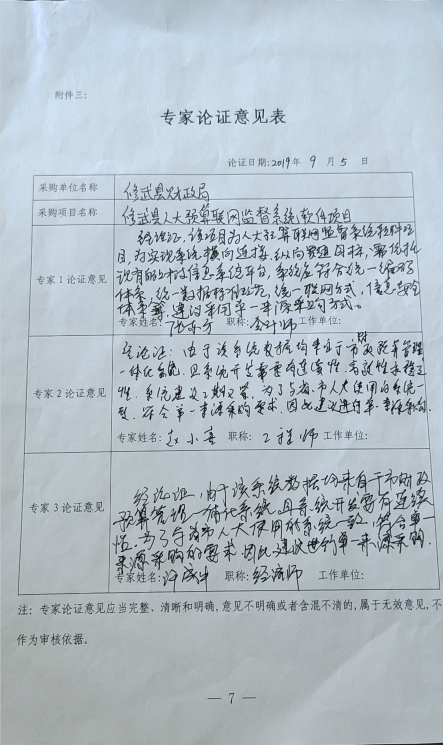 附件三:
专家论证意见表
论证日期:2019年 9 月 5 日
采购单位名称 修武县财政局
采购项目名称 修武县人大预算联网监督系统软件项目
经论证,该项目为人大预算联网监督系统软件项
目,为实现系统横向连接、纵向贯通目标,需依托
现有的财政信息系统平台,系统应符合统一编码
专家 1 论证意见
体系、统一数据标准规范,统一联网方式,信息安全
体系等,建议采用单一来源采购方式。
专家姓名: 职称: 会计师 工作单位:
经论证:由于该系统数据均来自于市财政预算管理
一体化系统,且系统开发需要有连续性、高效性和稳定
专家 2 论证意见
性,系统建设工期又紧,为了与省、市人大使用的系统一
致,符合单一来源采购要求,因此建议进行单一来源采购
专家姓名: 赵小喜 职称: 工程师 工作单位:
经论证,由于该系统数据均来自于市财政
专家 3 论证意见
预算管理一体化系统,且系统开发需有连续
性,为了与省市人大使用的系统一致,符合单一
来源采购的要求,因此建议进行单一来源采购.
专家姓名: 许 职称: 经济师 工作单位:
注: 专家论证意见应当完整、清晰和明确,意见不明确或者含混不清的,属于无效意见,不
作为审核依据。
— 7 —